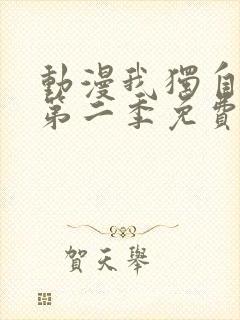 動漫我獨自
第二季免費
賀天舉